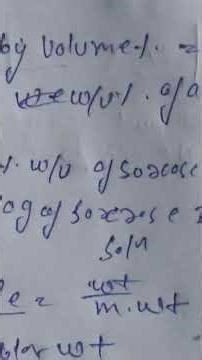 by volume %. =
w/v %. of a
%. w/v of sorcose
0g of sorcose =
Soln
e = wt
m.wt
lar wt